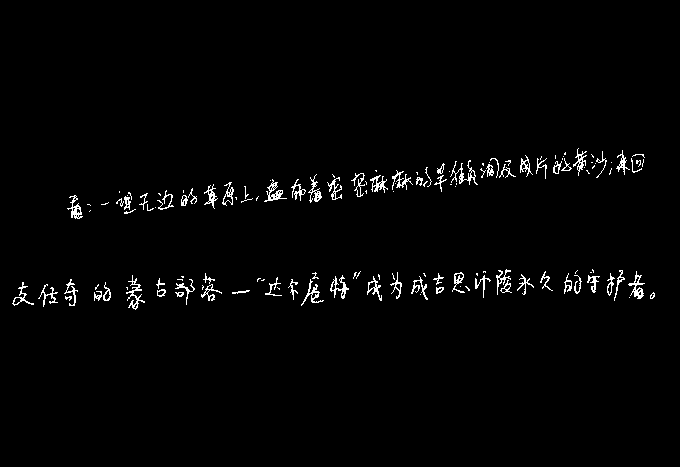 看:一望无边的草原上,遍布着密密麻麻的旱獭洞及成片的黄沙;来回
支传奇的蒙古部落—“达尔扈特”成为成吉思汗陵永久的守护者。